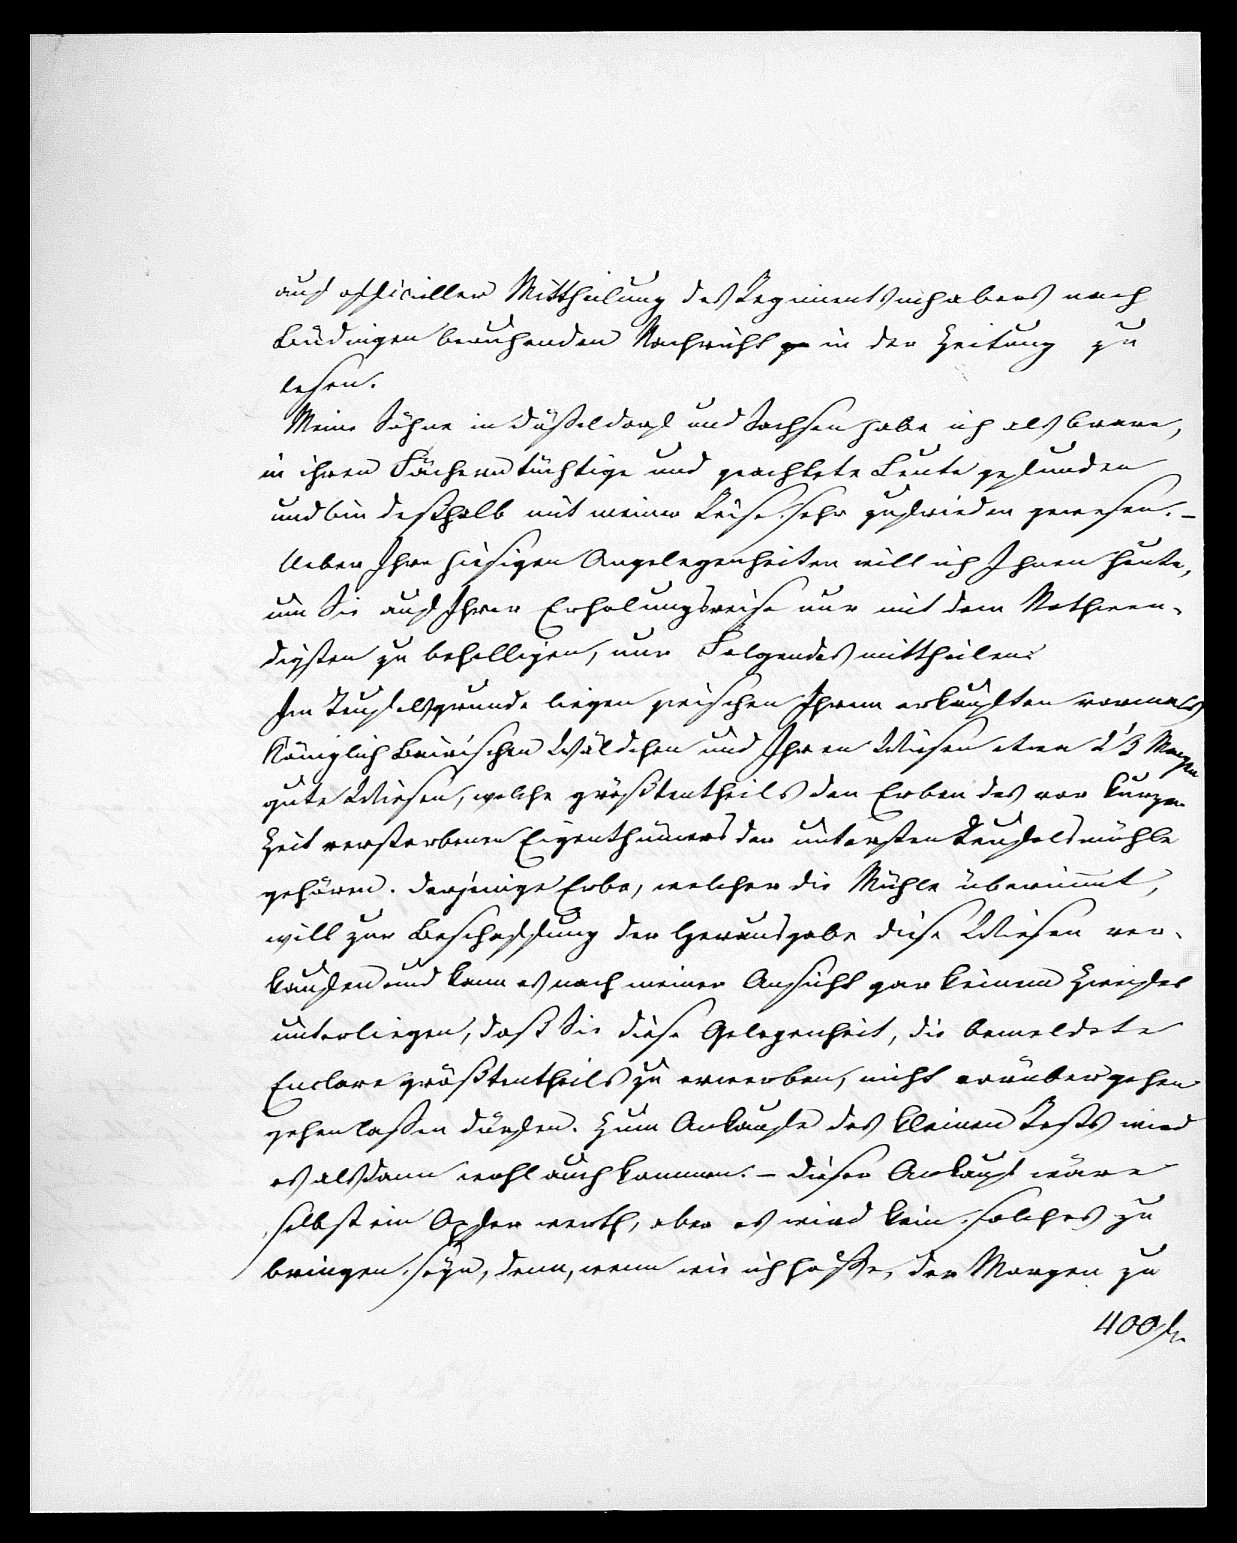 auf offizieller Mittheilung des Regimentsinhabers nach
Büdingen beruhenden Nachricht in der Zeitung zu
lesen.
Meine Söhne in Düßeldorf und Sachsen habe ich als brave,
in ihren Fächern tüchtige und geachtete Leute gefunden
und bin deßhalb mit meiner Reise sehr zufrieden gewesen. –
Ueber Ihre hiesigen Angelegenheiten will ich Ihnen heute,
um Sie auf Ihrer Erholungsreise nur mit dem Nothwen-
digsten zu behelligen, nur Folgendes mittheilen:
Im Teufelsgrunde liegen zwischen Ihrem erkauften vormals
Königlich Bairischen Wäldchen und Ihren Wiesen etwa 2 1/3 Morgen
gute Wiesen, welche größtentheils den Erben des vor kurzer
Zeit verstorbenen Eigenthümers der untersten Teufelsmühle
gehören. Derjenige Erbe, welcher die Mühle übernimmt,
will zur Beschaffung der Herausgabe diese Wiesen ver-
kaufen und kann es nach meiner Ansicht gar keinem Zweifel
unterliegen, daß Sie diese Gelegenheit, die bemeldete
Enclave größtentheils zu erwerben, nicht vorübergehen
gehen laßen dürfen. Zum Ankaufe des kleinen Rests wird
es alsdann wohl auch kommen. – Dieser Ankauf wäre
selbst ein Opfer werth, aber es wird kein solches zu
bringen seyn, denn, wenn wie ich hoffe, der Morgen zu
400 fr.